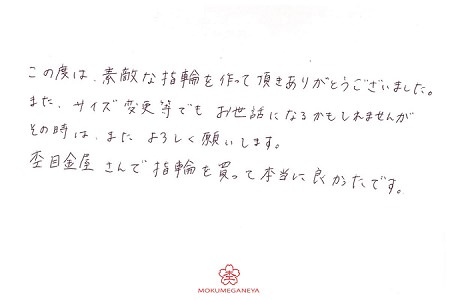 この度は、素敵な指輪を作って頂きありがとうございました。
また、サイズ変更等でもお世話になるかもしれませんが
その時は、またよろしく願いします。
杢目金屋さんで指輪を買って本当に良かったです。
杢
MOKUMEGANEYA